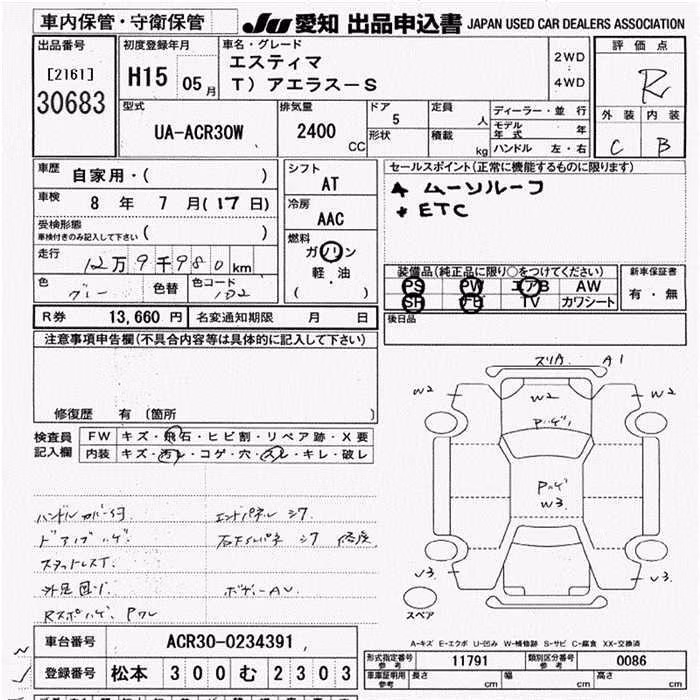 車内保管・守衛保管
JU 愛知 出品申込書 JAPAN USED CAR DEALERS ASSOCIATION
出品番号
[2161]
30683
初度登録年月
H15 05月
車名・グレード
エスティマ
T) アエラス-S
2WD
4WD
評価点
R
外装 内装
C B
型式
UA-ACR30W
排気量
2400 CC
ドア
5
形状
定員 人
積載 kg
ディーラー・並行
モデル年式 年
ハンドル 左・右
車歴
自家用・( )
車検
8 年 7 月(17日)
受検形態
車検付きのみ記入して下さい ( )
走行
12万9千980km
色
グレー
色替
色コード
1D2
シフト
AT
冷房
AAC
燃料
ガソリン
軽・油
( )
セールスポイント(正常に機能するものに限ります)
ムーンルーフ
ETC
装備品(純正品に限り○をつけてください)
PS PW エアB AW
SR TV カワシート
新車保証書
有・無
後日品
R券 13,660 円 名変通知期限 月 日
注意事項申告欄(不具合内容等は具体的に記入して下さい)
修復歴 有 〔箇所 〕
検査員
記入欄
FW キズ・飛石・ヒビ割・リペア跡・X要
内装 キズ・汚レ・コゲ・穴・スレ・キレ・破レ
ハンドルカバースリ エンドパネルシワ
外足回リ
スリキズ A1
W2
W2
W2
Pハゲ
Pハゲ
W3
V3
V3
スペア
A-キズ E-エクボ U-凹み W-補修跡 S-サビ C-腐食 XX-交換済
車台番号 ACR30-0234391
登録番号 松本 300 む 2303
形式指定番号 参考 11791 類別区分番号 参考 0086
車庫証明用 参考 長さ cm 幅 cm 高さ cm